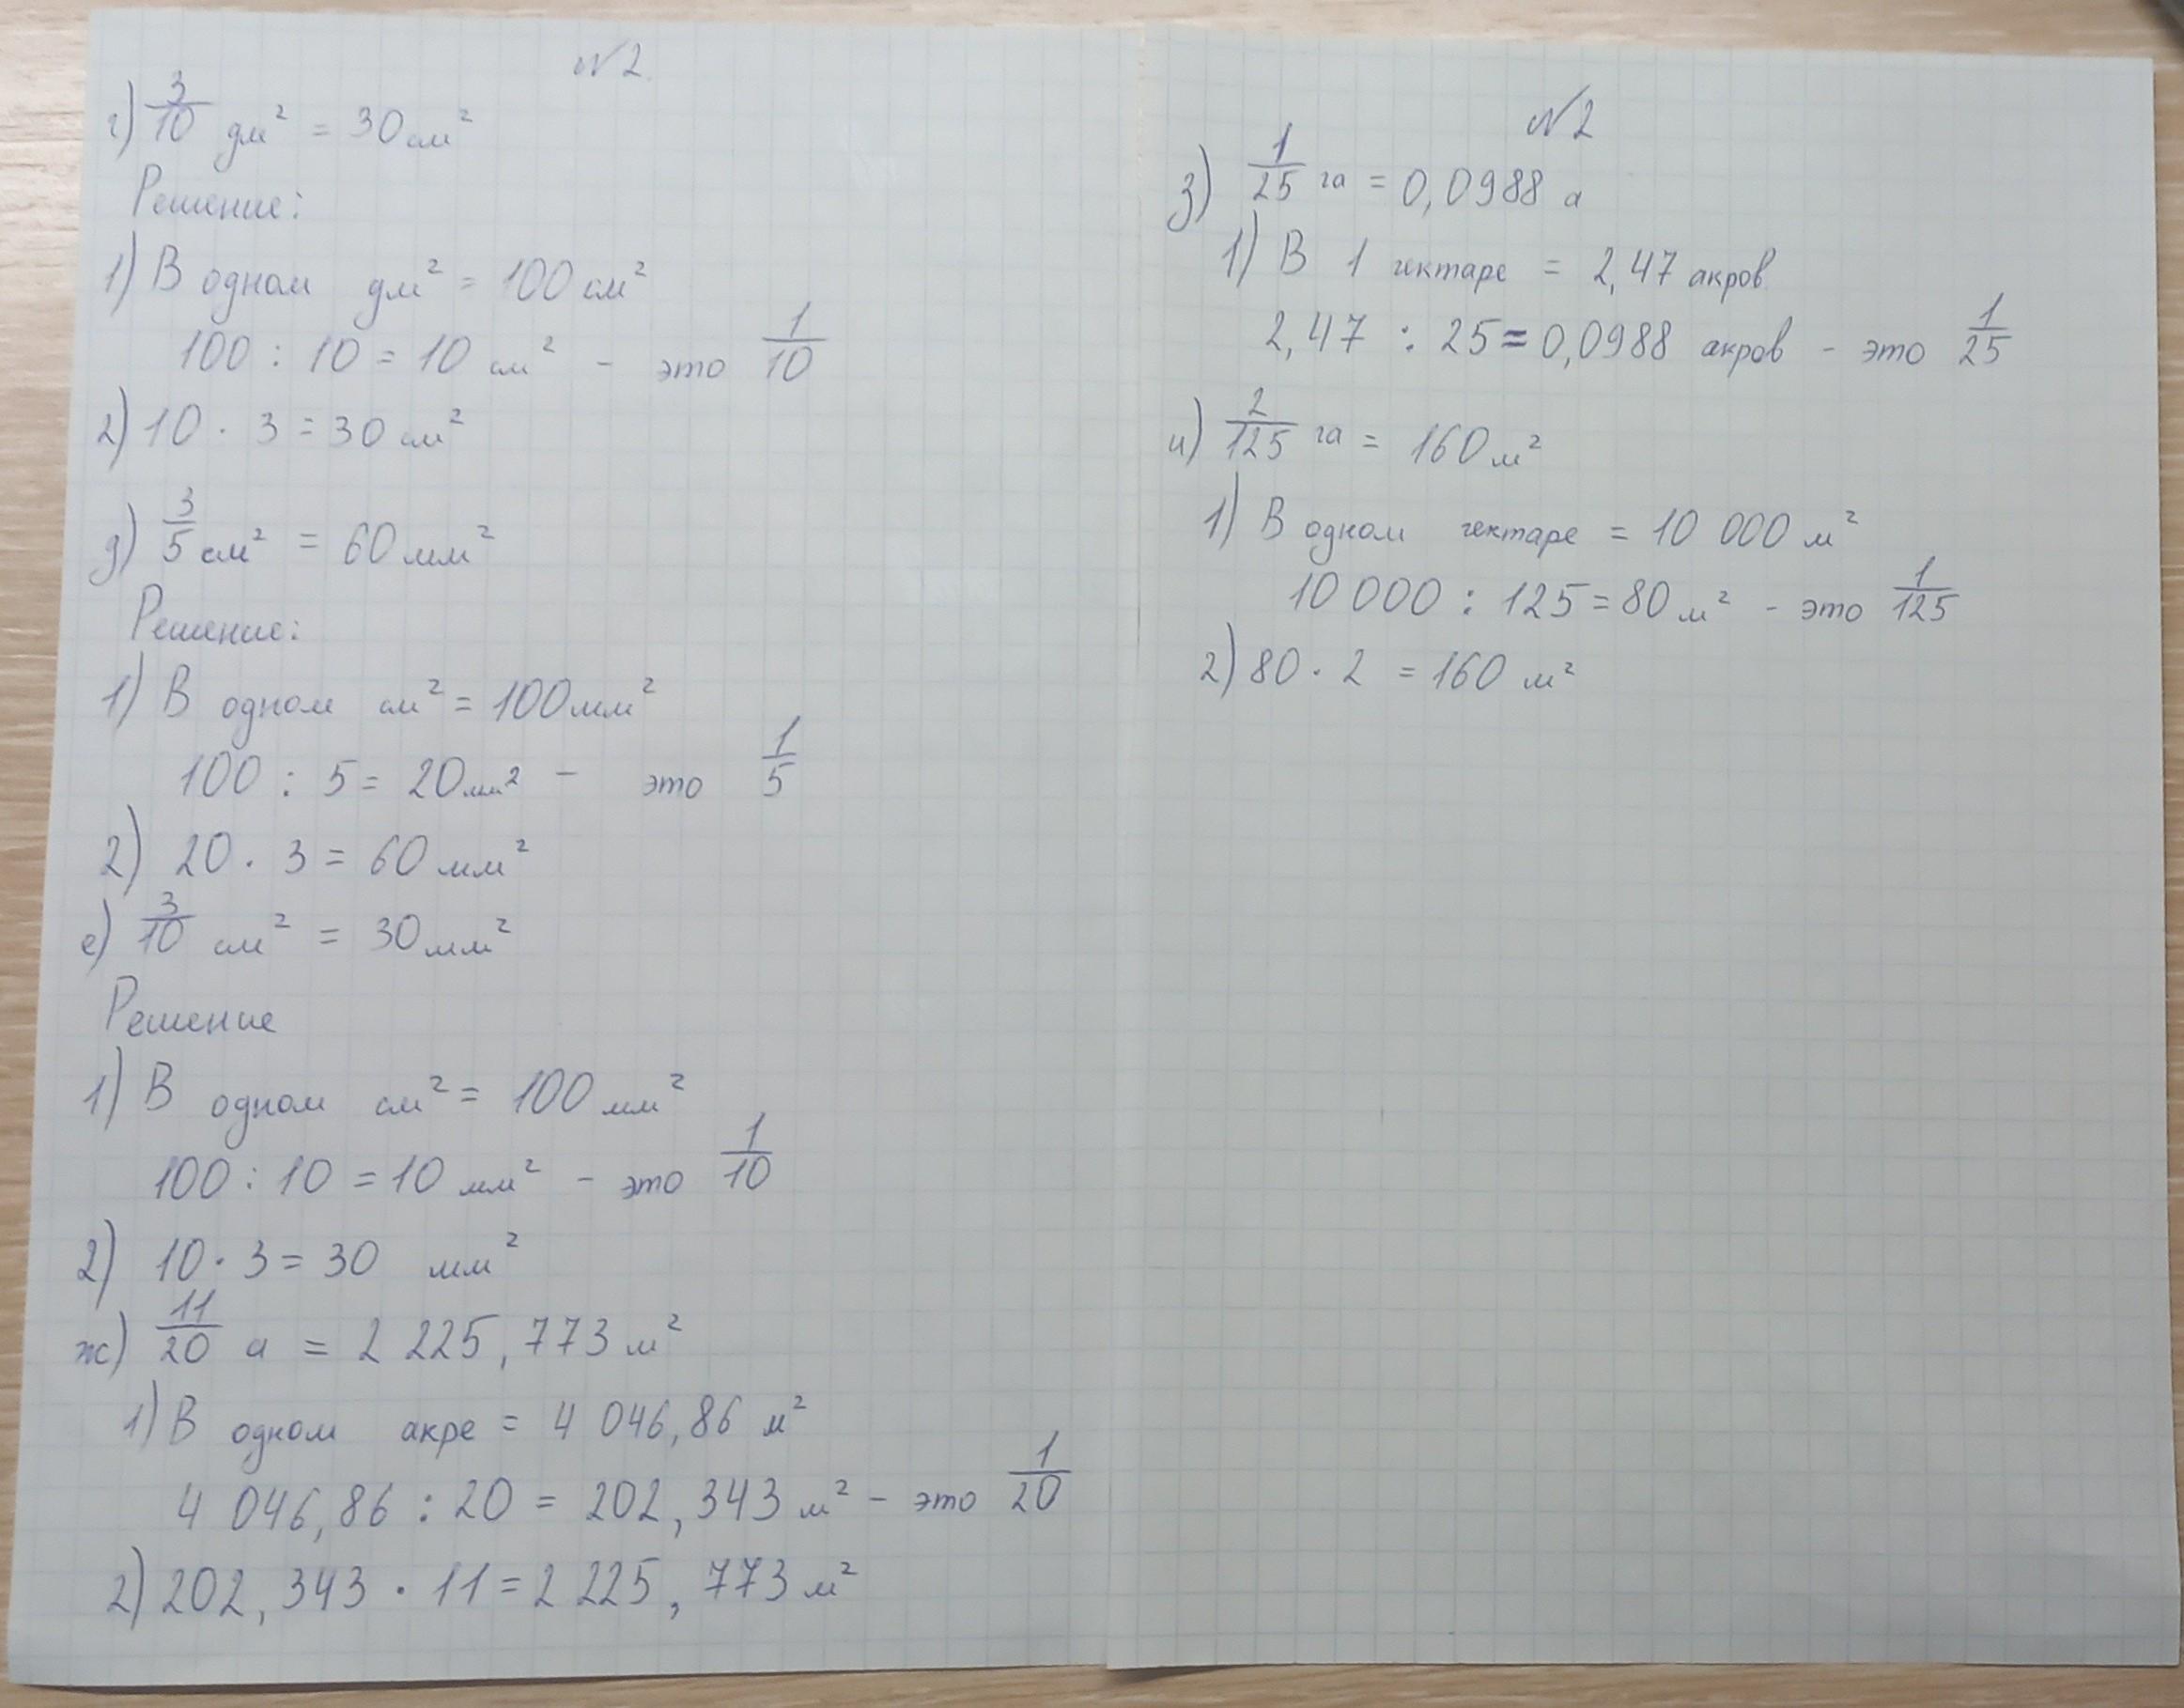 №2
г) 3/10 дм² = 30 см²
Решение:
1) В одном дм² = 100 см²
100 : 10 = 10 см² - это 1/10
2) 10 · 3 = 30 см²
д) 3/5 см² = 60 мм²
Решение:
1) В одном см² = 100 мм²
100 : 5 = 20 мм² - это 1/5
2) 20 · 3 = 60 мм²
е) 3/10 см² = 30 мм²
Решение
1) В одном см² = 100 мм²
100 : 10 = 10 мм² - это 1/10
2) 10 · 3 = 30 мм²
ж) 11/20 а = 2 225,773 м²
1) В одном акре = 4 046,86 м²
4 046,86 : 20 = 202,343 м² - это 1/20
2) 202,343 · 11 = 2 225,773 м²
№2
з) 1/25 га = 0,0988 а
1) В 1 гектаре = 2,47 акров
2,47 : 25 = 0,0988 акров - это 1/25
и) 2/125 га = 160 м²
1) В одном гектаре = 10 000 м²
10 000 : 125 = 80 м² - это 1/125
2) 80 · 2 = 160 м²